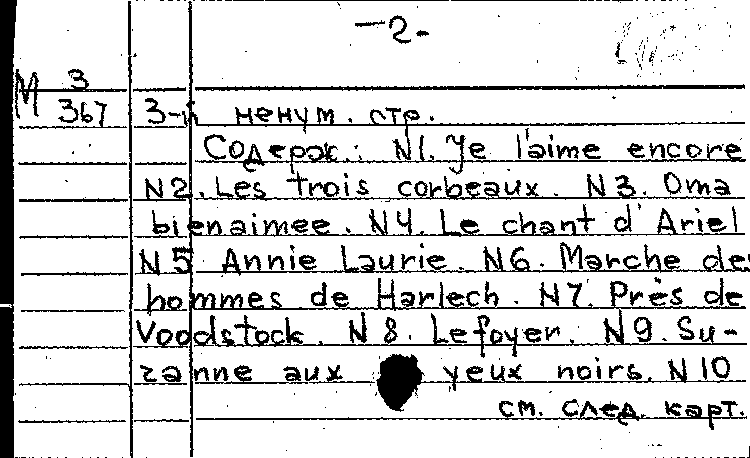 -2-
М 3
367 3-й ненум. стр.
Содерж.: N1. Je l'aime encore
N2. Les trois corbeaux. N3. Oma
bienaimee. N4. Le chant d'Ariel
N5 Annie Laurie. N6. Marche des
hommes de Harlech. N7. Près de
Voodstock. N8. Lefoyer. N9. Su-
zanne aux yeux noirs. N10
см. след. карт.